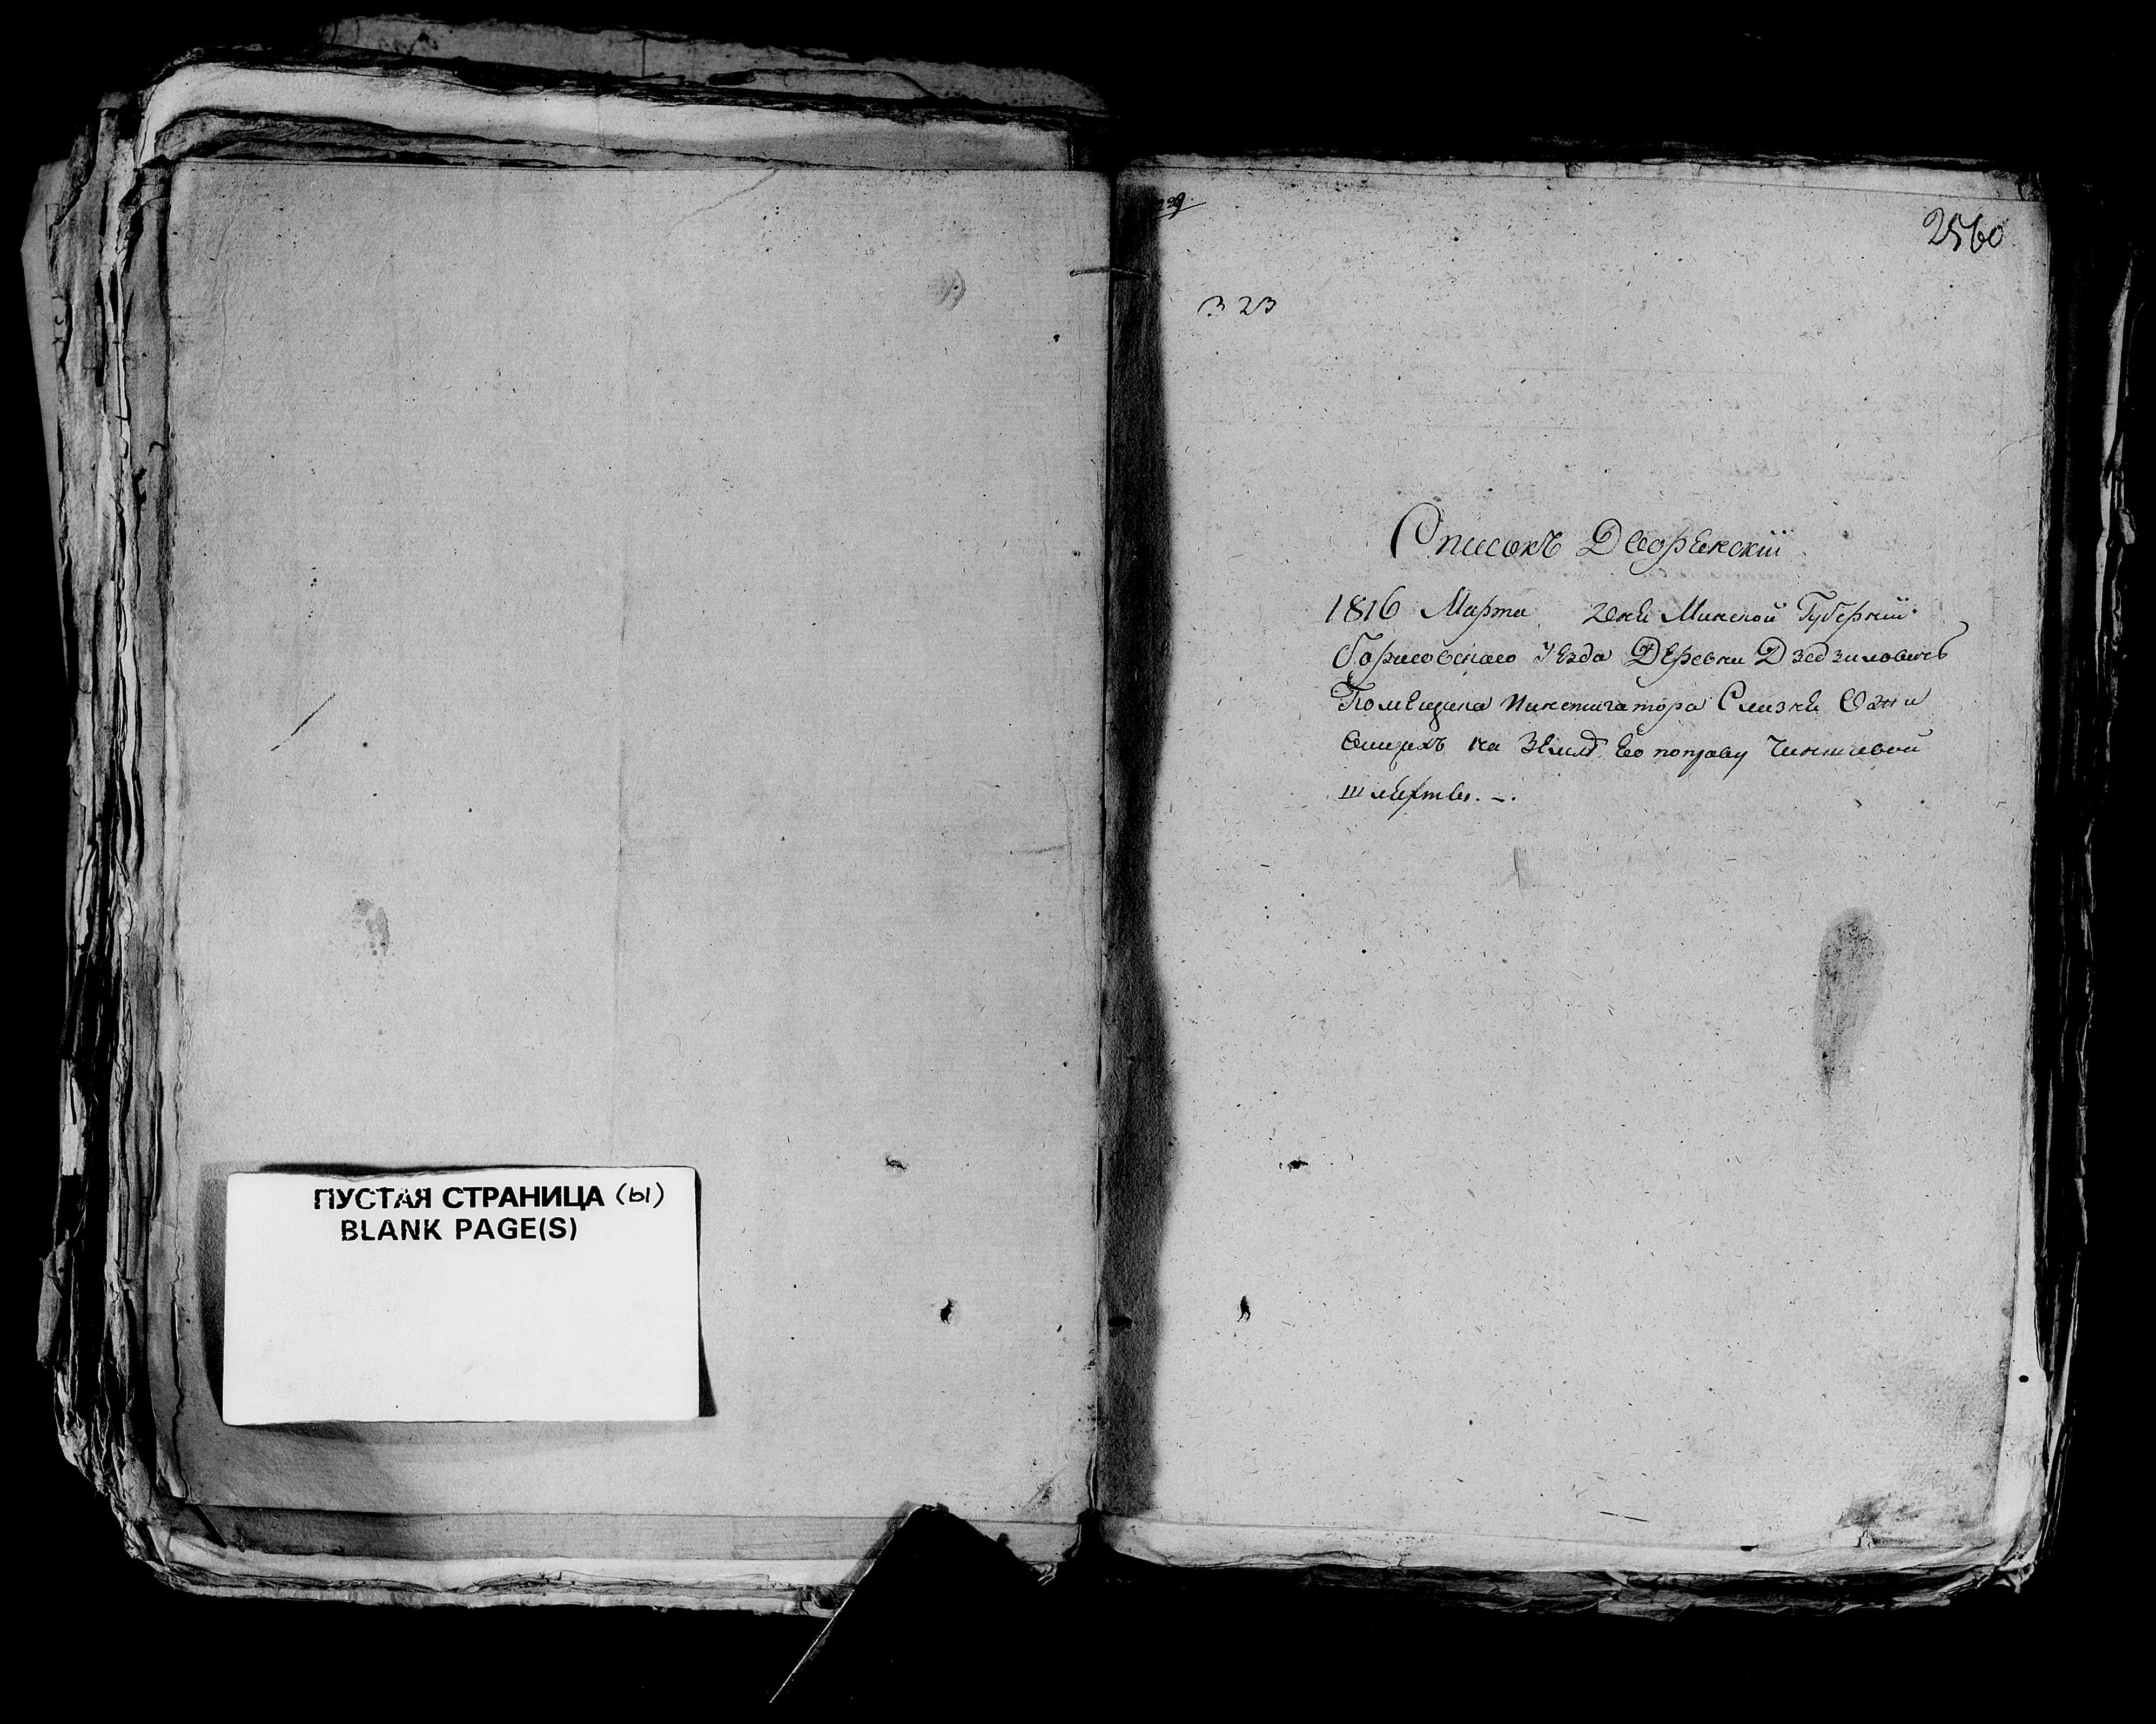 ПУСТАЯ СТРАНИЦА (Ы)
BLANK PAGE(S)
2560
323
Списокъ Дворѣнскій
1816 Марта дня Минской Губерніи
Борисовскаго Уезда Деревни Дзедзиловичъ
Помещика Инстигатора Слизня
на Землѣ Его поправу Чиншевой
шлѧхты. –.